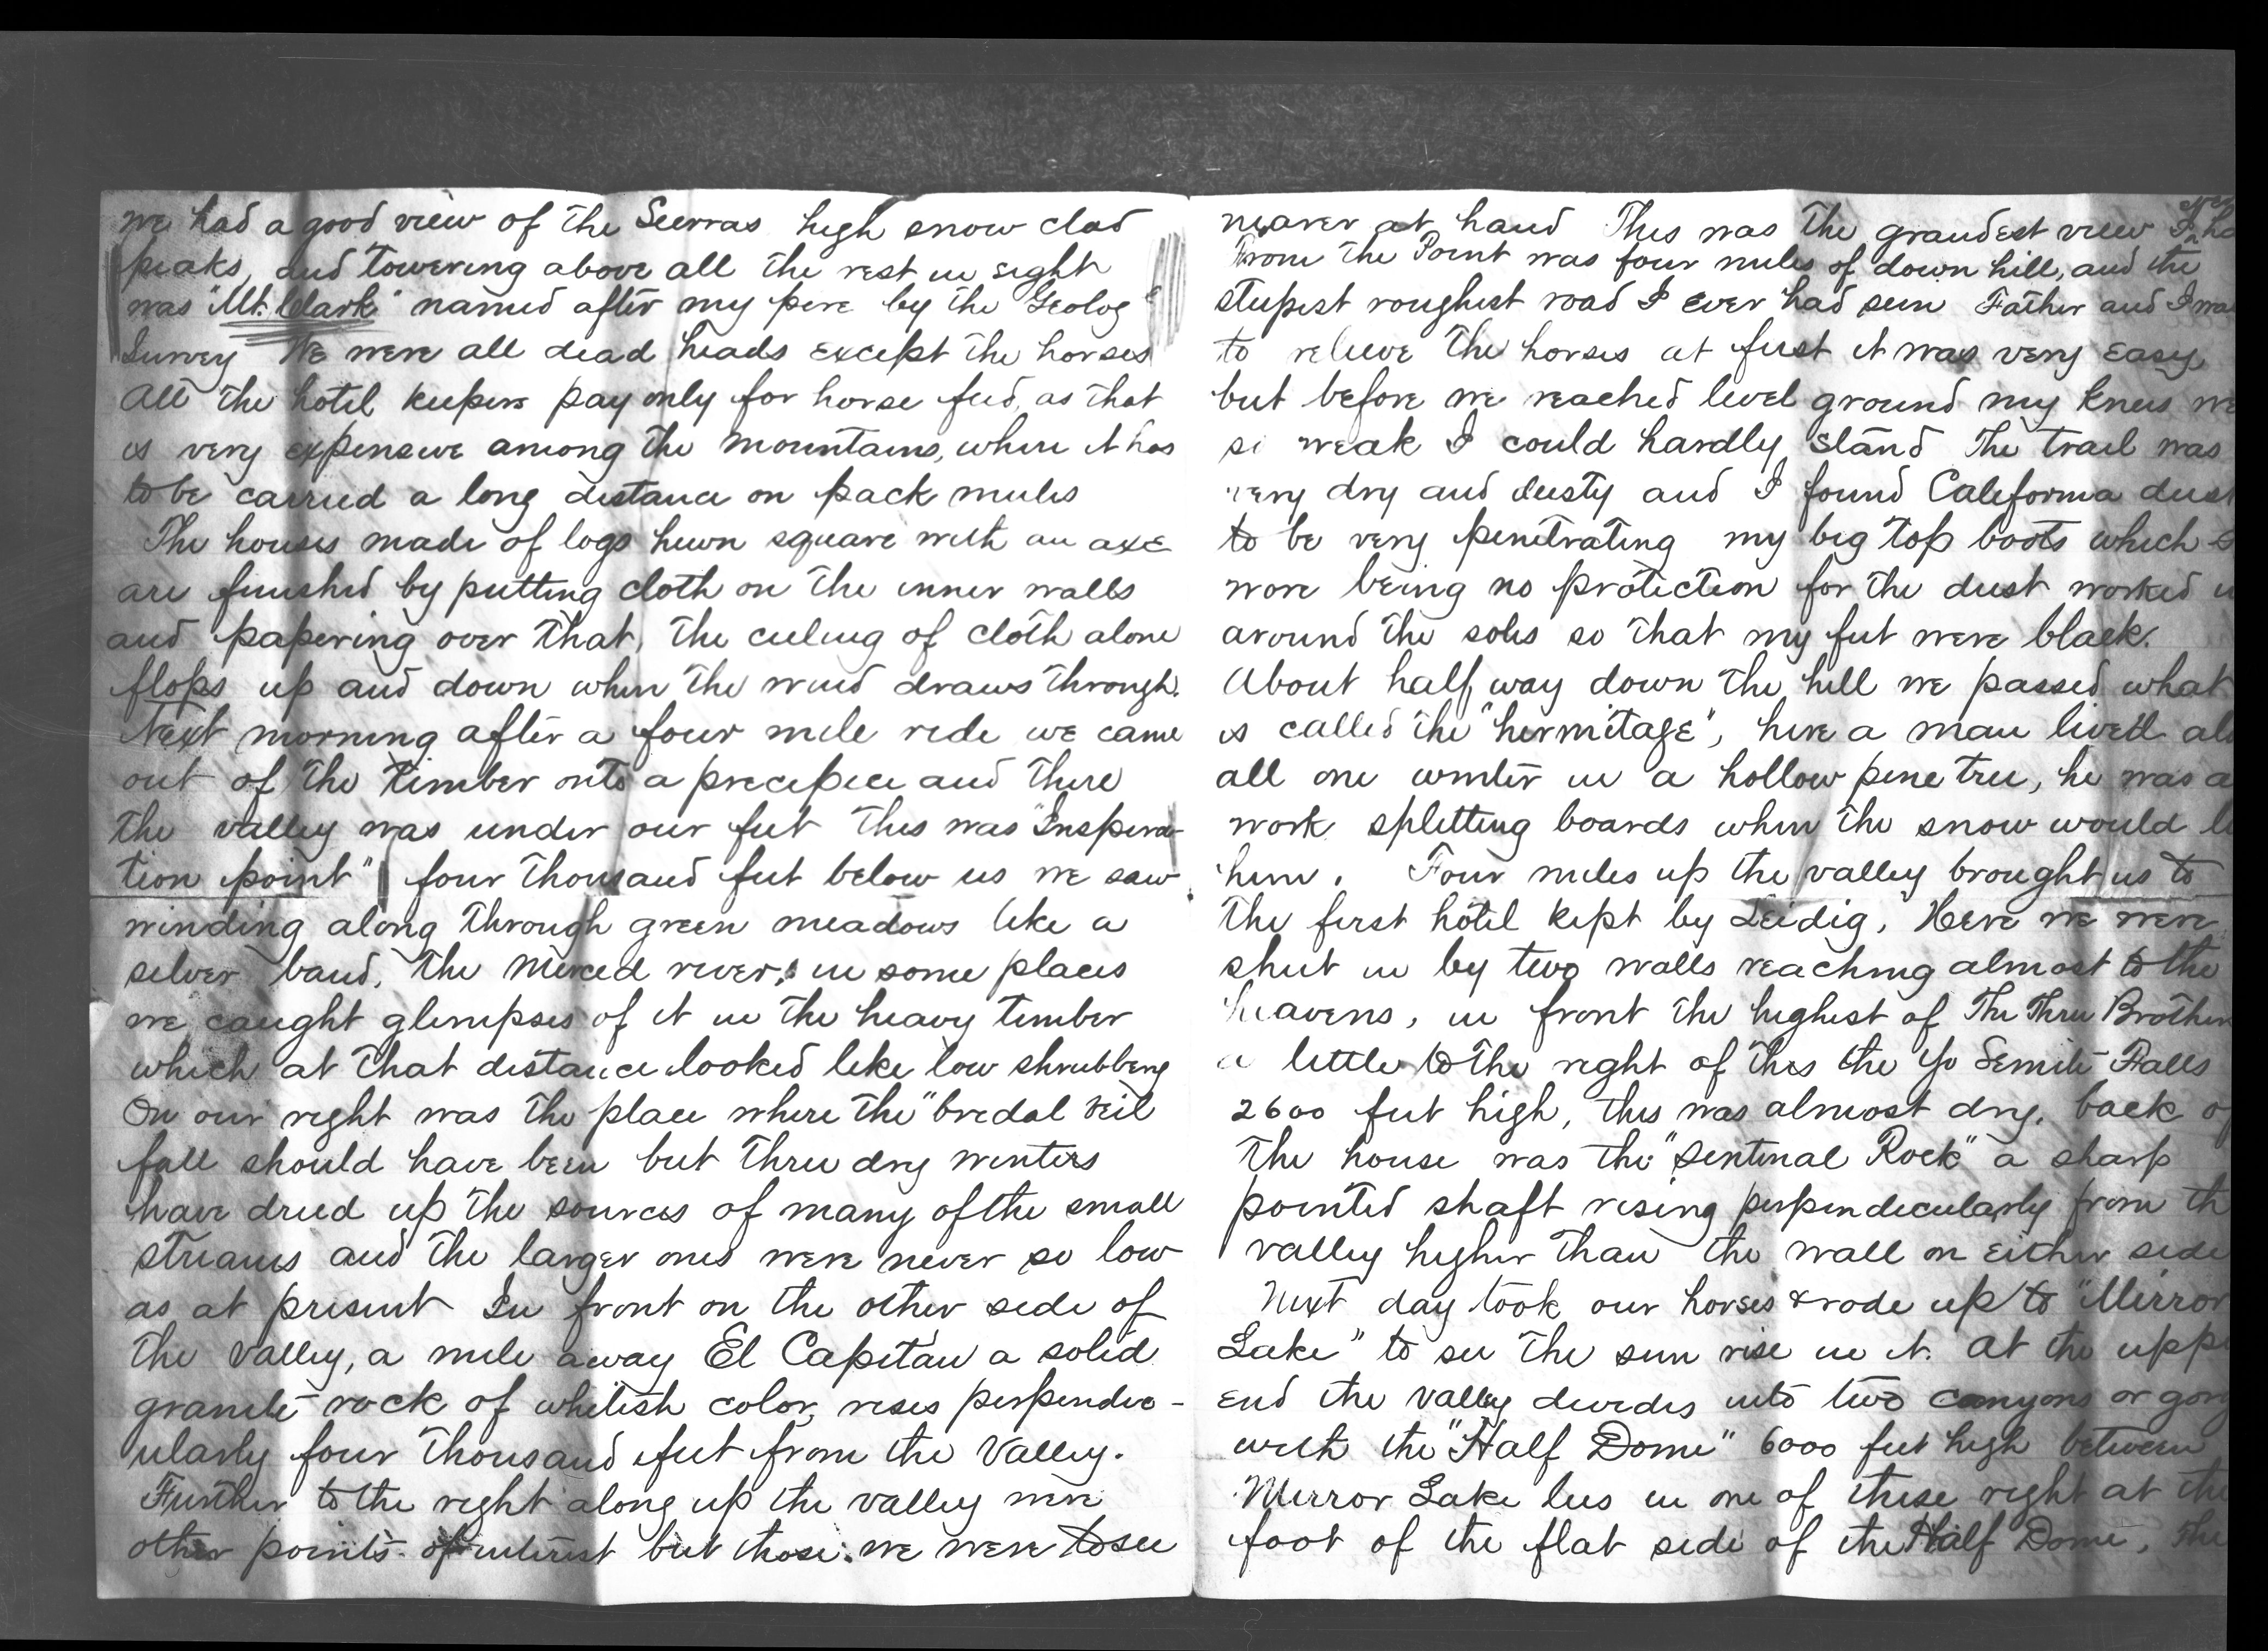 we had a good view of the Sierras high snow clad
peaks, and towering above all the rest in sight
was "Mt. Clark" named after my pere by the Geolog
Survey We were all dead heads except the horses
All the hotel keepers pay only for horse feed, as that
is very expensive among the mountains, where it has
to be carried a long distance on pack mules
The houses made of logs hewn square with an axe
are finished by putting cloth on the inner walls
and papering over that, the ceiling of cloth alone
flops up and down when the wind draws through.
Next morning after a four mile ride we came
out of the timber onto a precipice and there
the valley was under our feet This was "Inspira-
tion point" four thousand feet below us we saw
winding along through green meadows like a
silver band, the Merced river, in some places
we caught glimpses of it in the heavy timber
which at that distance looked like low shrubbery
On our right was the place where the "bridal veil
fall should have been but three dry winters
have dried up the sources of many of the small
streams and the larger ones were never so low
as at present In front on the other side of
the valley, a mile away El Capitan a solid
granite rock of whitish color, rises perpendic-
ularly four thousand feet from the Valley.
Further to the right along up the valley were
other points of interest but those we were to see
nearer at hand This was the grandest view I
From the Point was four miles of down hill, and the
steepest roughest road I ever had seen Father and I
to relieve the horses at first it was very easy
but before we reached level ground my knees
so weak I could hardly stand The trail was
very dry and dusty and I found California dust
to be very penetrating my big top boots which
wore being no protection for the dust worked
around the soles so that my feet were black.
About half way down the hill we passed what
is called the "hermitage", here a man lived
all one winter in a hollow pine tree, he was
work splitting boards when the snow would
him. Four miles up the valley brought us to
the first hotel kept by Leidig, Here we were
shut in by two walls reaching almost to the
heavens, in front the highest of The Three Brothers
a little to the right of this the Yo Semite Falls
2600 feet high, this was almost dry, back of
the house was the "Sentinal Rock" a sharp
pointed shaft rising perpendicularly from th
valley higher than the wall on either side
Next day took our horses & rode up to "Mirror
Lake" to see the sun rise in it. At the uppe
end the valley divides into two canyons or gorg
with the "Half Dome" 6000 feet high between
Mirror Lake lies in one of these right at the
foot of the flat side of the Half Dome, The